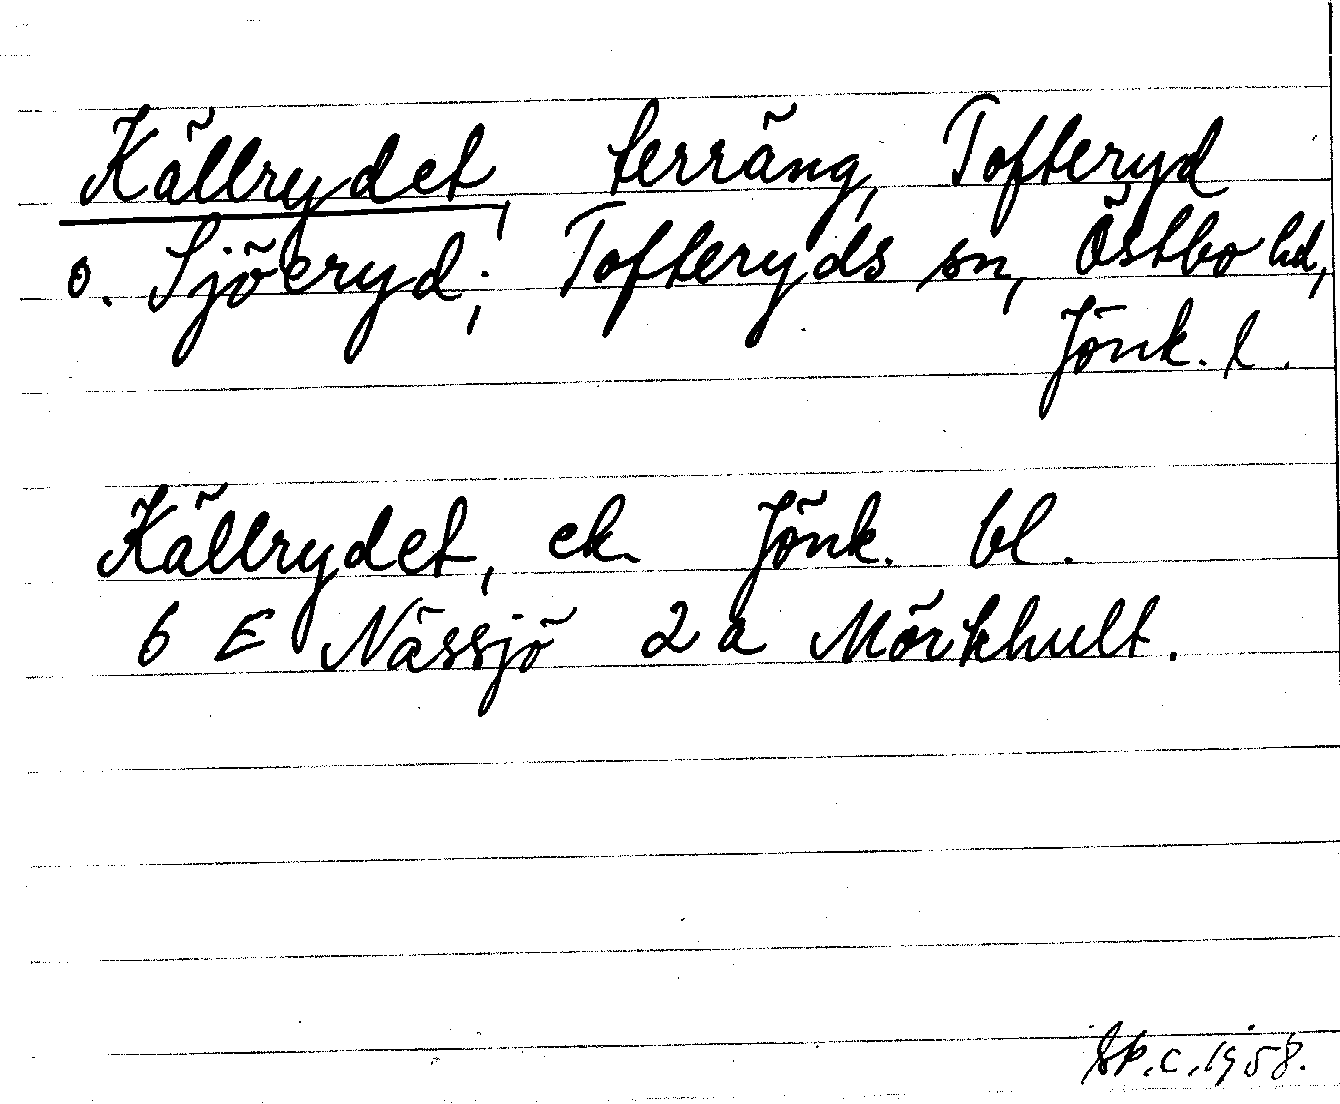 Källrydet, terräng, Tofteryd
o. Sjöeryd; Tofteryds sn, Östbo hd,
Jönk. l.
Källrydet, ek. Jönk. bl.
6 E Nässjö 2 a Mörkhult.
Sp.c. 1958.